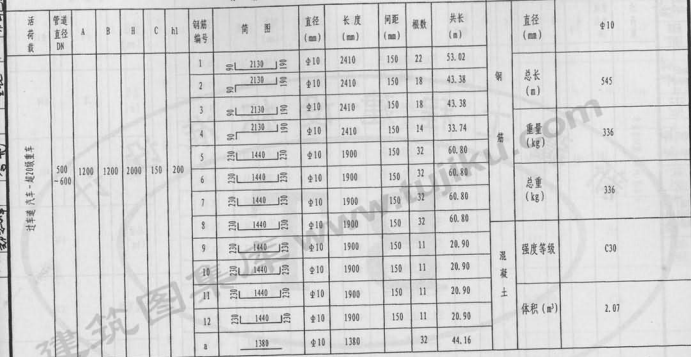 活荷载 管道直径DN A B H C h1 钢筋编号 简图 直径(mm) 长度(mm) 间距(mm) 根数 共长(m) 直径(mm) Φ10
过车道 汽车-超20级重车 500-600 1200 1200 2000 150 200
1 90 2130 190 Φ10 2410 150 22 53.02
2 90 2130 190 Φ10 2410 150 18 43.38
3 90 2130 190 Φ10 2410 150 18 43.38
4 90 2130 190 Φ10 2410 150 14 33.74
5 230 1440 230 Φ10 1900 150 32 60.80
6 230 1440 230 Φ10 1900 150 32 60.80
7 230 1440 230 Φ10 1900 150 32 60.80
8 230 1440 230 Φ10 1900 150 32 60.80
9 230 1440 230 Φ10 1900 150 11 20.90
10 230 1440 230 Φ10 1900 150 11 20.90
11 230 1440 230 Φ10 1900 150 11 20.90
12 230 1440 230 Φ10 1900 150 11 20.90
a 1380 Φ10 1380 32 44.16
钢筋
总长(m) 545
重量(kg) 336
总重(kg) 336
混凝土
强度等级 C30
体积(m³) 2.07
建筑图集库www.tujiku.com